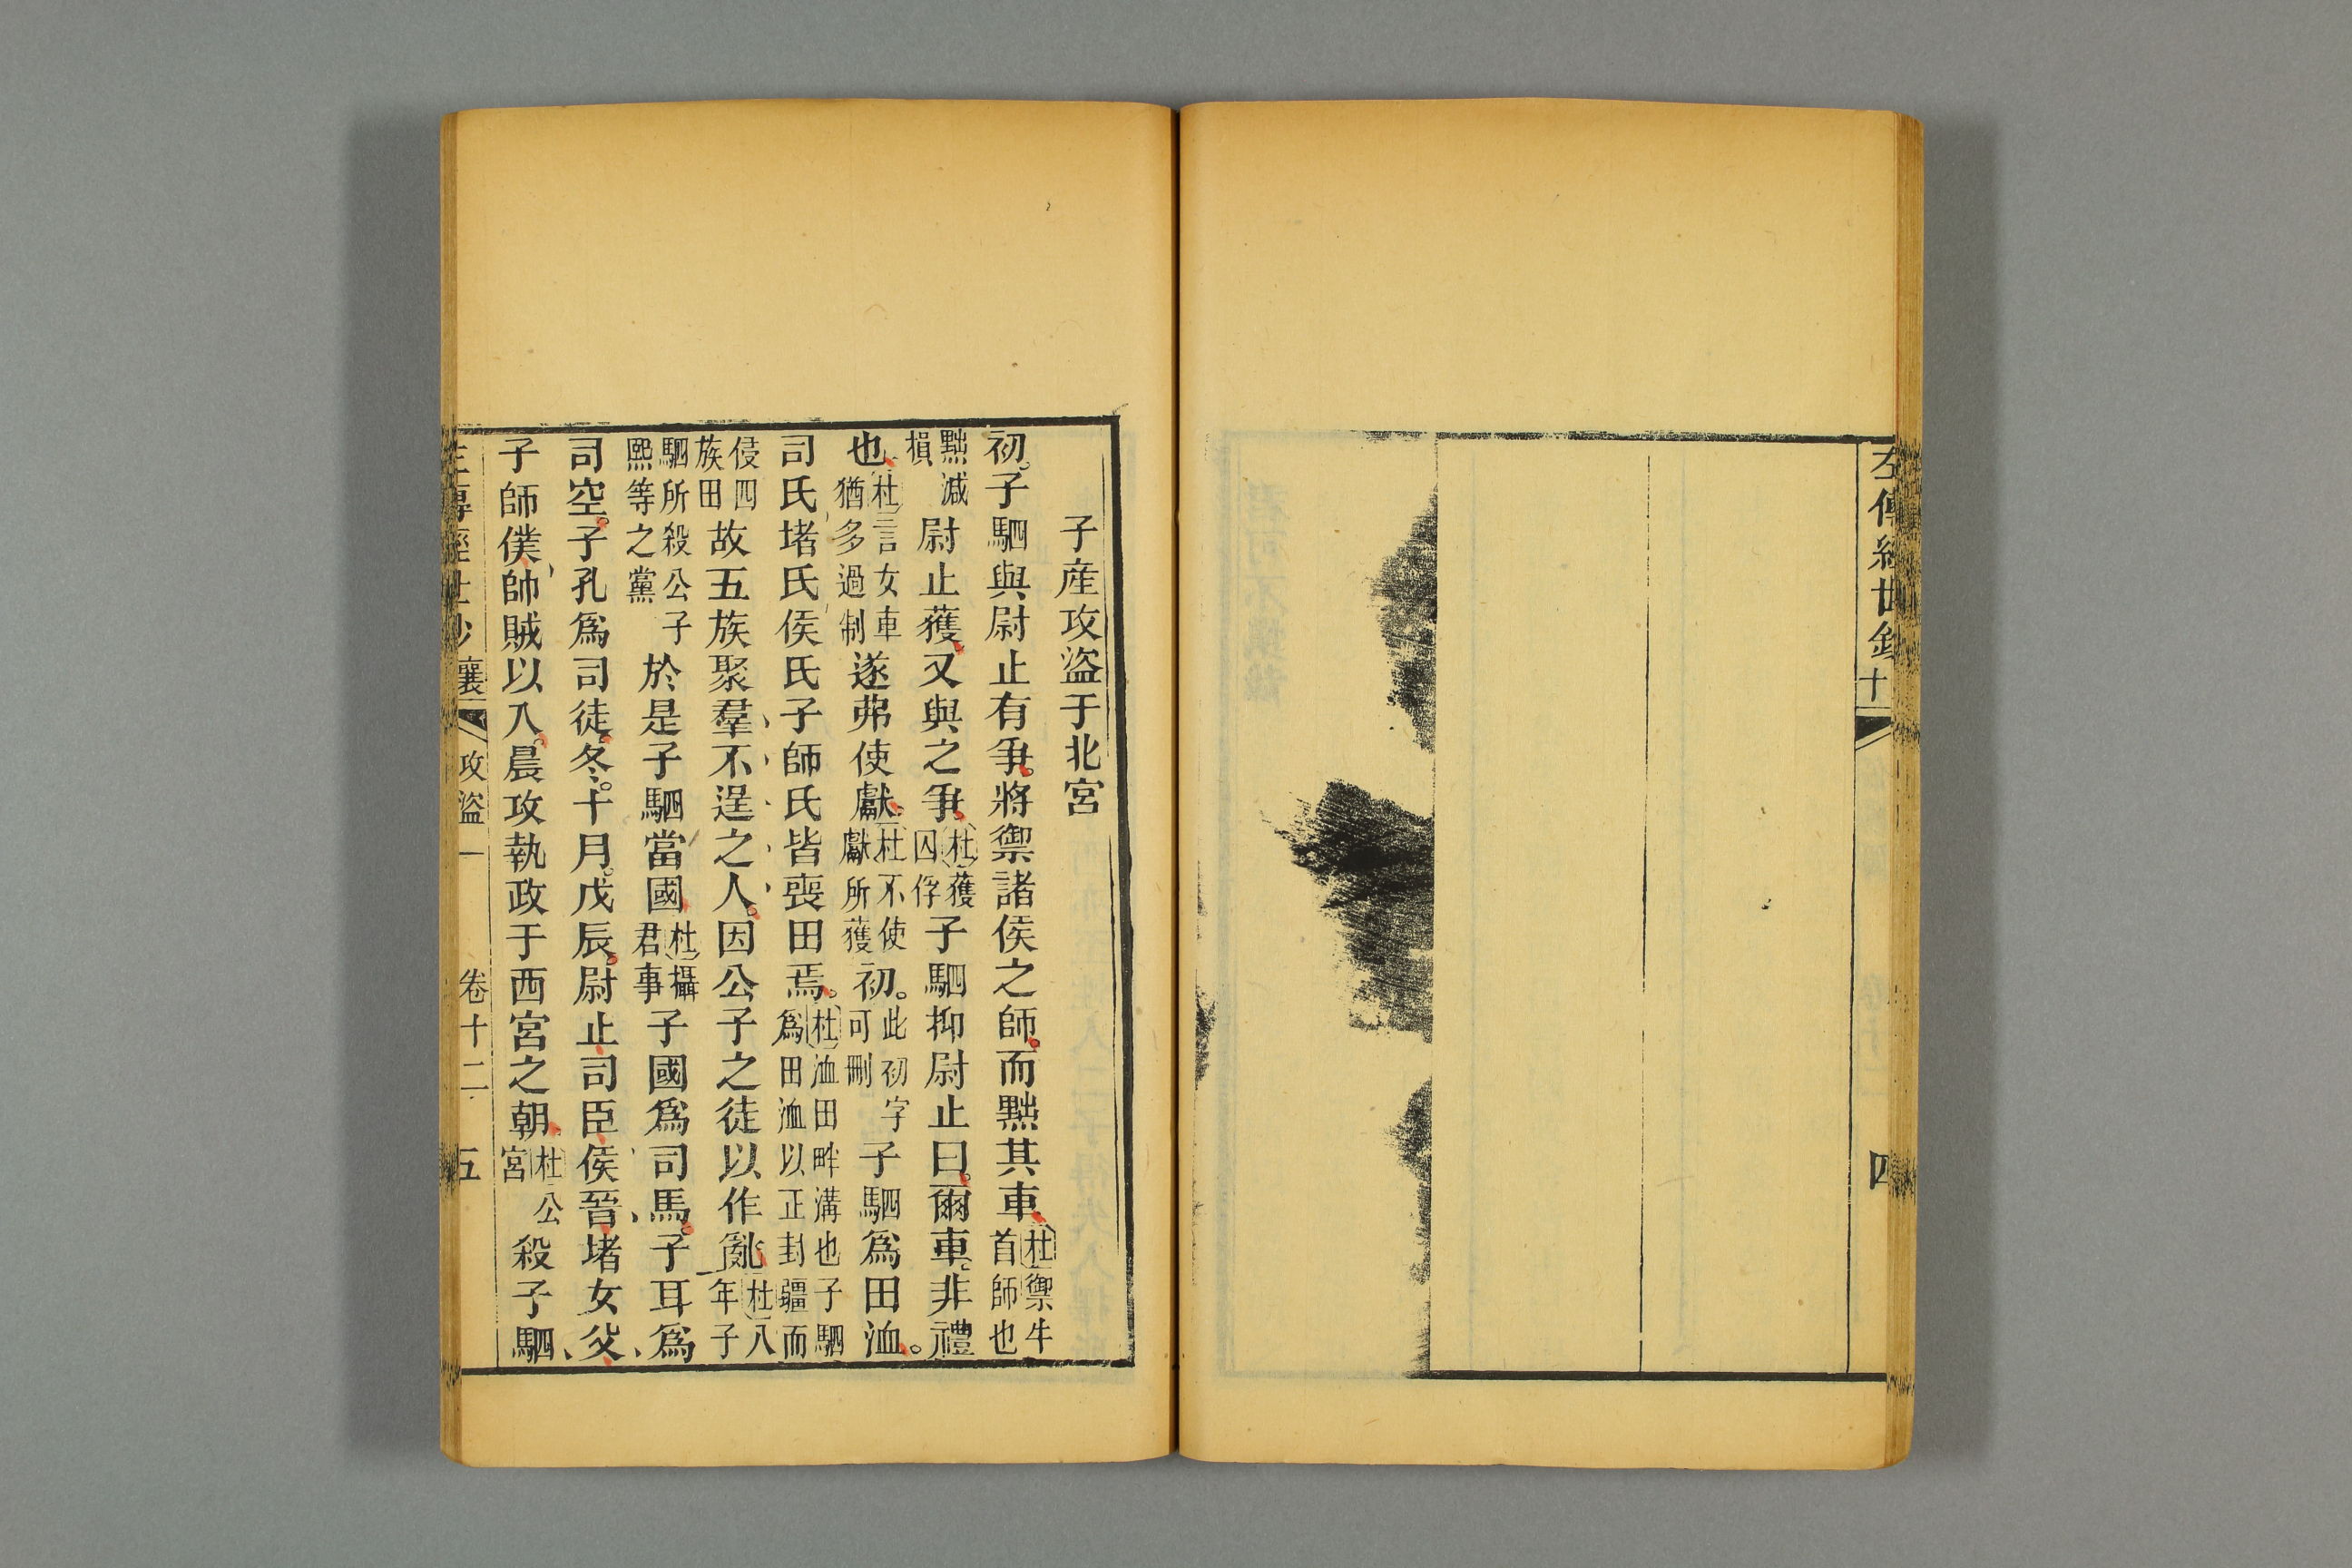 左傳經世鈔 十
四
子產攻盜于北宮
初。子駟與尉止有爭。將禦諸侯之師。而黜其車杜禦牛首師也
黜減損尉止獲。又與之爭。杜獲囚俘子駟抑尉止曰。爾車。非禮
也杜言女車猶多過制遂弗使獻。杜不使獻所獲初。此初字可刪子駟爲田洫。
司氏堵氏侯氏子師氏皆喪田焉。杜洫田畔溝也子駟爲田洫以正封疆而
侵四族田故五族聚羣不逞之人。因公子之徒以作亂杜八年子
駟所殺公子熙等之黨於是子駟當國杜攝君事子國爲司馬。子耳爲
司空。子孔爲司徒。冬。十月。戊辰。尉止司臣侯晉堵女父
子師僕帥賊以入。晨攻執政于西宮之朝杜公宮殺子駟
左傳經世鈔 襄 攻盜一 卷十二 五